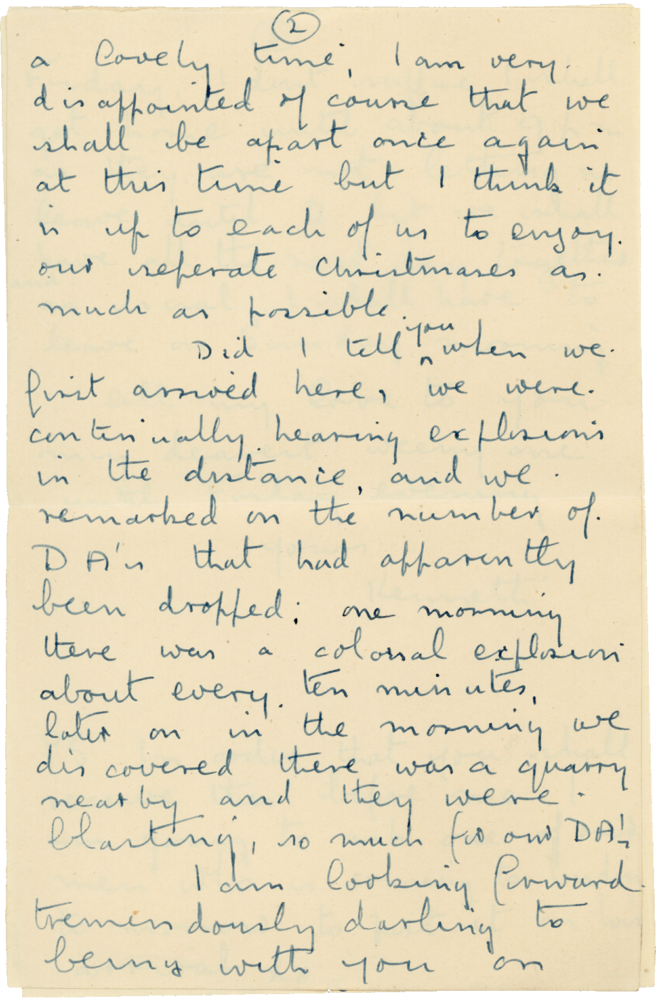 (2)
a lovely time, I am very.
disappointed of course that we
shall be apart once again
at this time but I think it
is up to each of us to enjoy.
our seperate Christmases as.
much as possible.
Did I tell you when we.
first arrived here, we were.
continually hearing explosions
in the distance, and we.
remarked on the number of.
DA's that had apparently
been dropped: one morning
there was a colossal explosion
about every. ten minutes,
later on in the morning we
discovered there was a quarry
nearby and they were.
blasting, so much for our DA's
I am looking forward.
tremendously darling to
being with you on